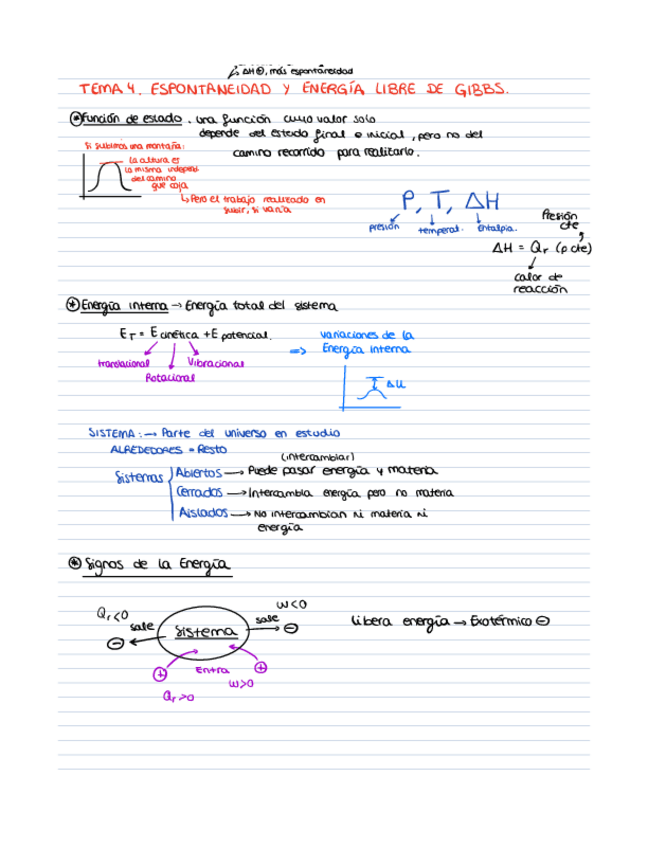 ↳ ΔH ⊖, más espontaneidad
TEMA 4. ESPONTANEIDAD Y ENERGÍA LIBRE DE GIBBS.
* Función de estado. una función cuyo valor solo
depende del estado final e inicial, pero no del
camino recorrido para realizarlo.
Si subimos una montaña:
la altura es
la misma independ.
del camino
que coja
↳ Pero el trabajo realizado en
subir, si varía
P, T, ΔH
presión temperat. Entalpía.
Presión
cte
ΔH = Qr (p cte)
calor de
reacción
* Energía interna → Energía total del sistema
ET = E cinética + E potencial.
translacional
Rotacional
Vibracional
⇒ variaciones de la
Energía interna
ΔU
SISTEMA: → Parte del universo en estudio
ALREDEDORES = Resto
(intercambiar)
Sistemas
Abiertos → Puede pasar energía y materia
Cerrados → Intercambia energía pero no materia
Aislados → No intercambian ni materia ni
energía
* Signos de la Energía
Qr<0
sale
⊖
Sistema
w<0
sale
⊖
Libera energía → Exotérmico ⊖
⊕ Entra ⊕
w>0
Qr>0